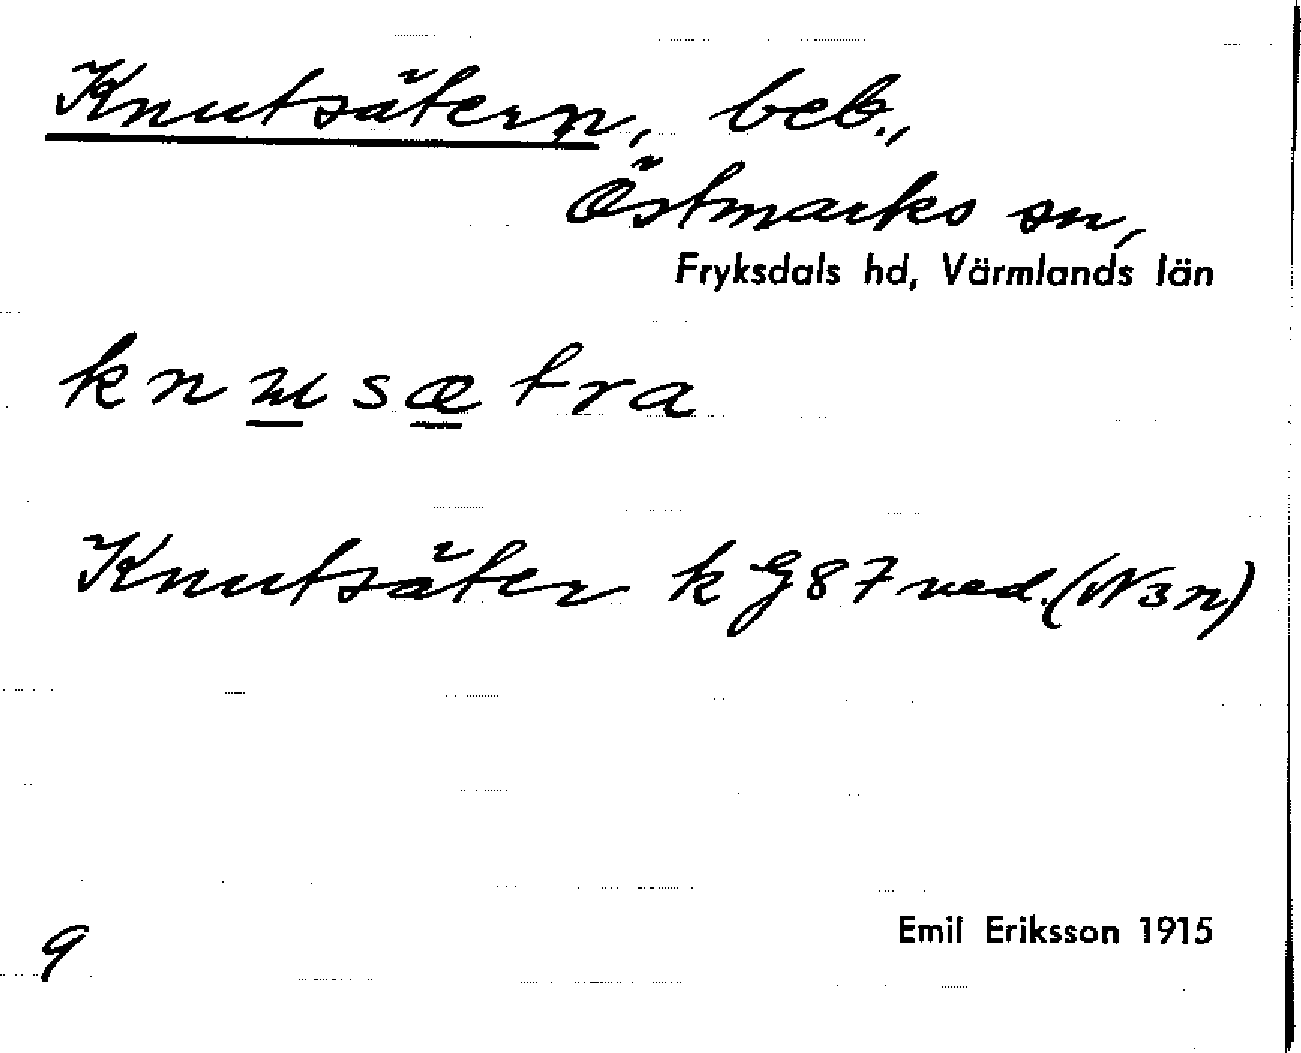 Knutsätern, beb.,
Östmarks sn,
Fryksdals hd, Värmlands län
knusætra
Knutsäter k G87 ned. (N3n)
Emil Eriksson 1915
9